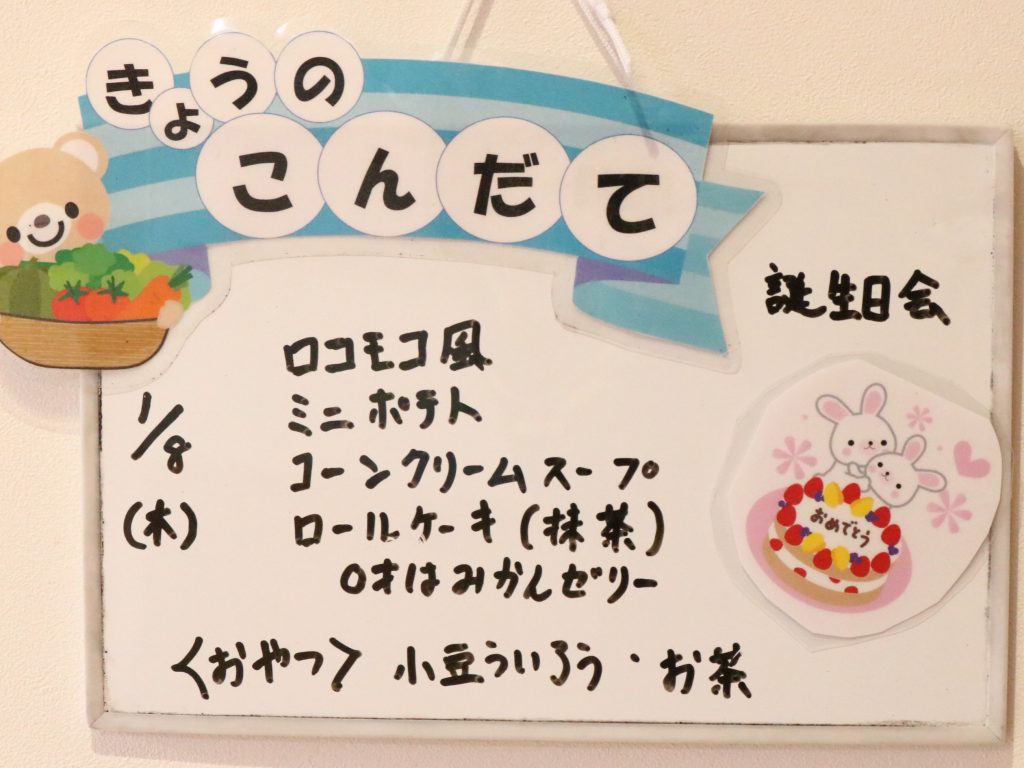 きょうの
こんだて
誕生日会
ロコモコ風
1/8
ミニポテト
コーンクリームスープ
(木)
ロールケーキ(抹茶)
0才はみかんゼリー
おめでとう
〈おやつ〉 小豆ういろう・お茶